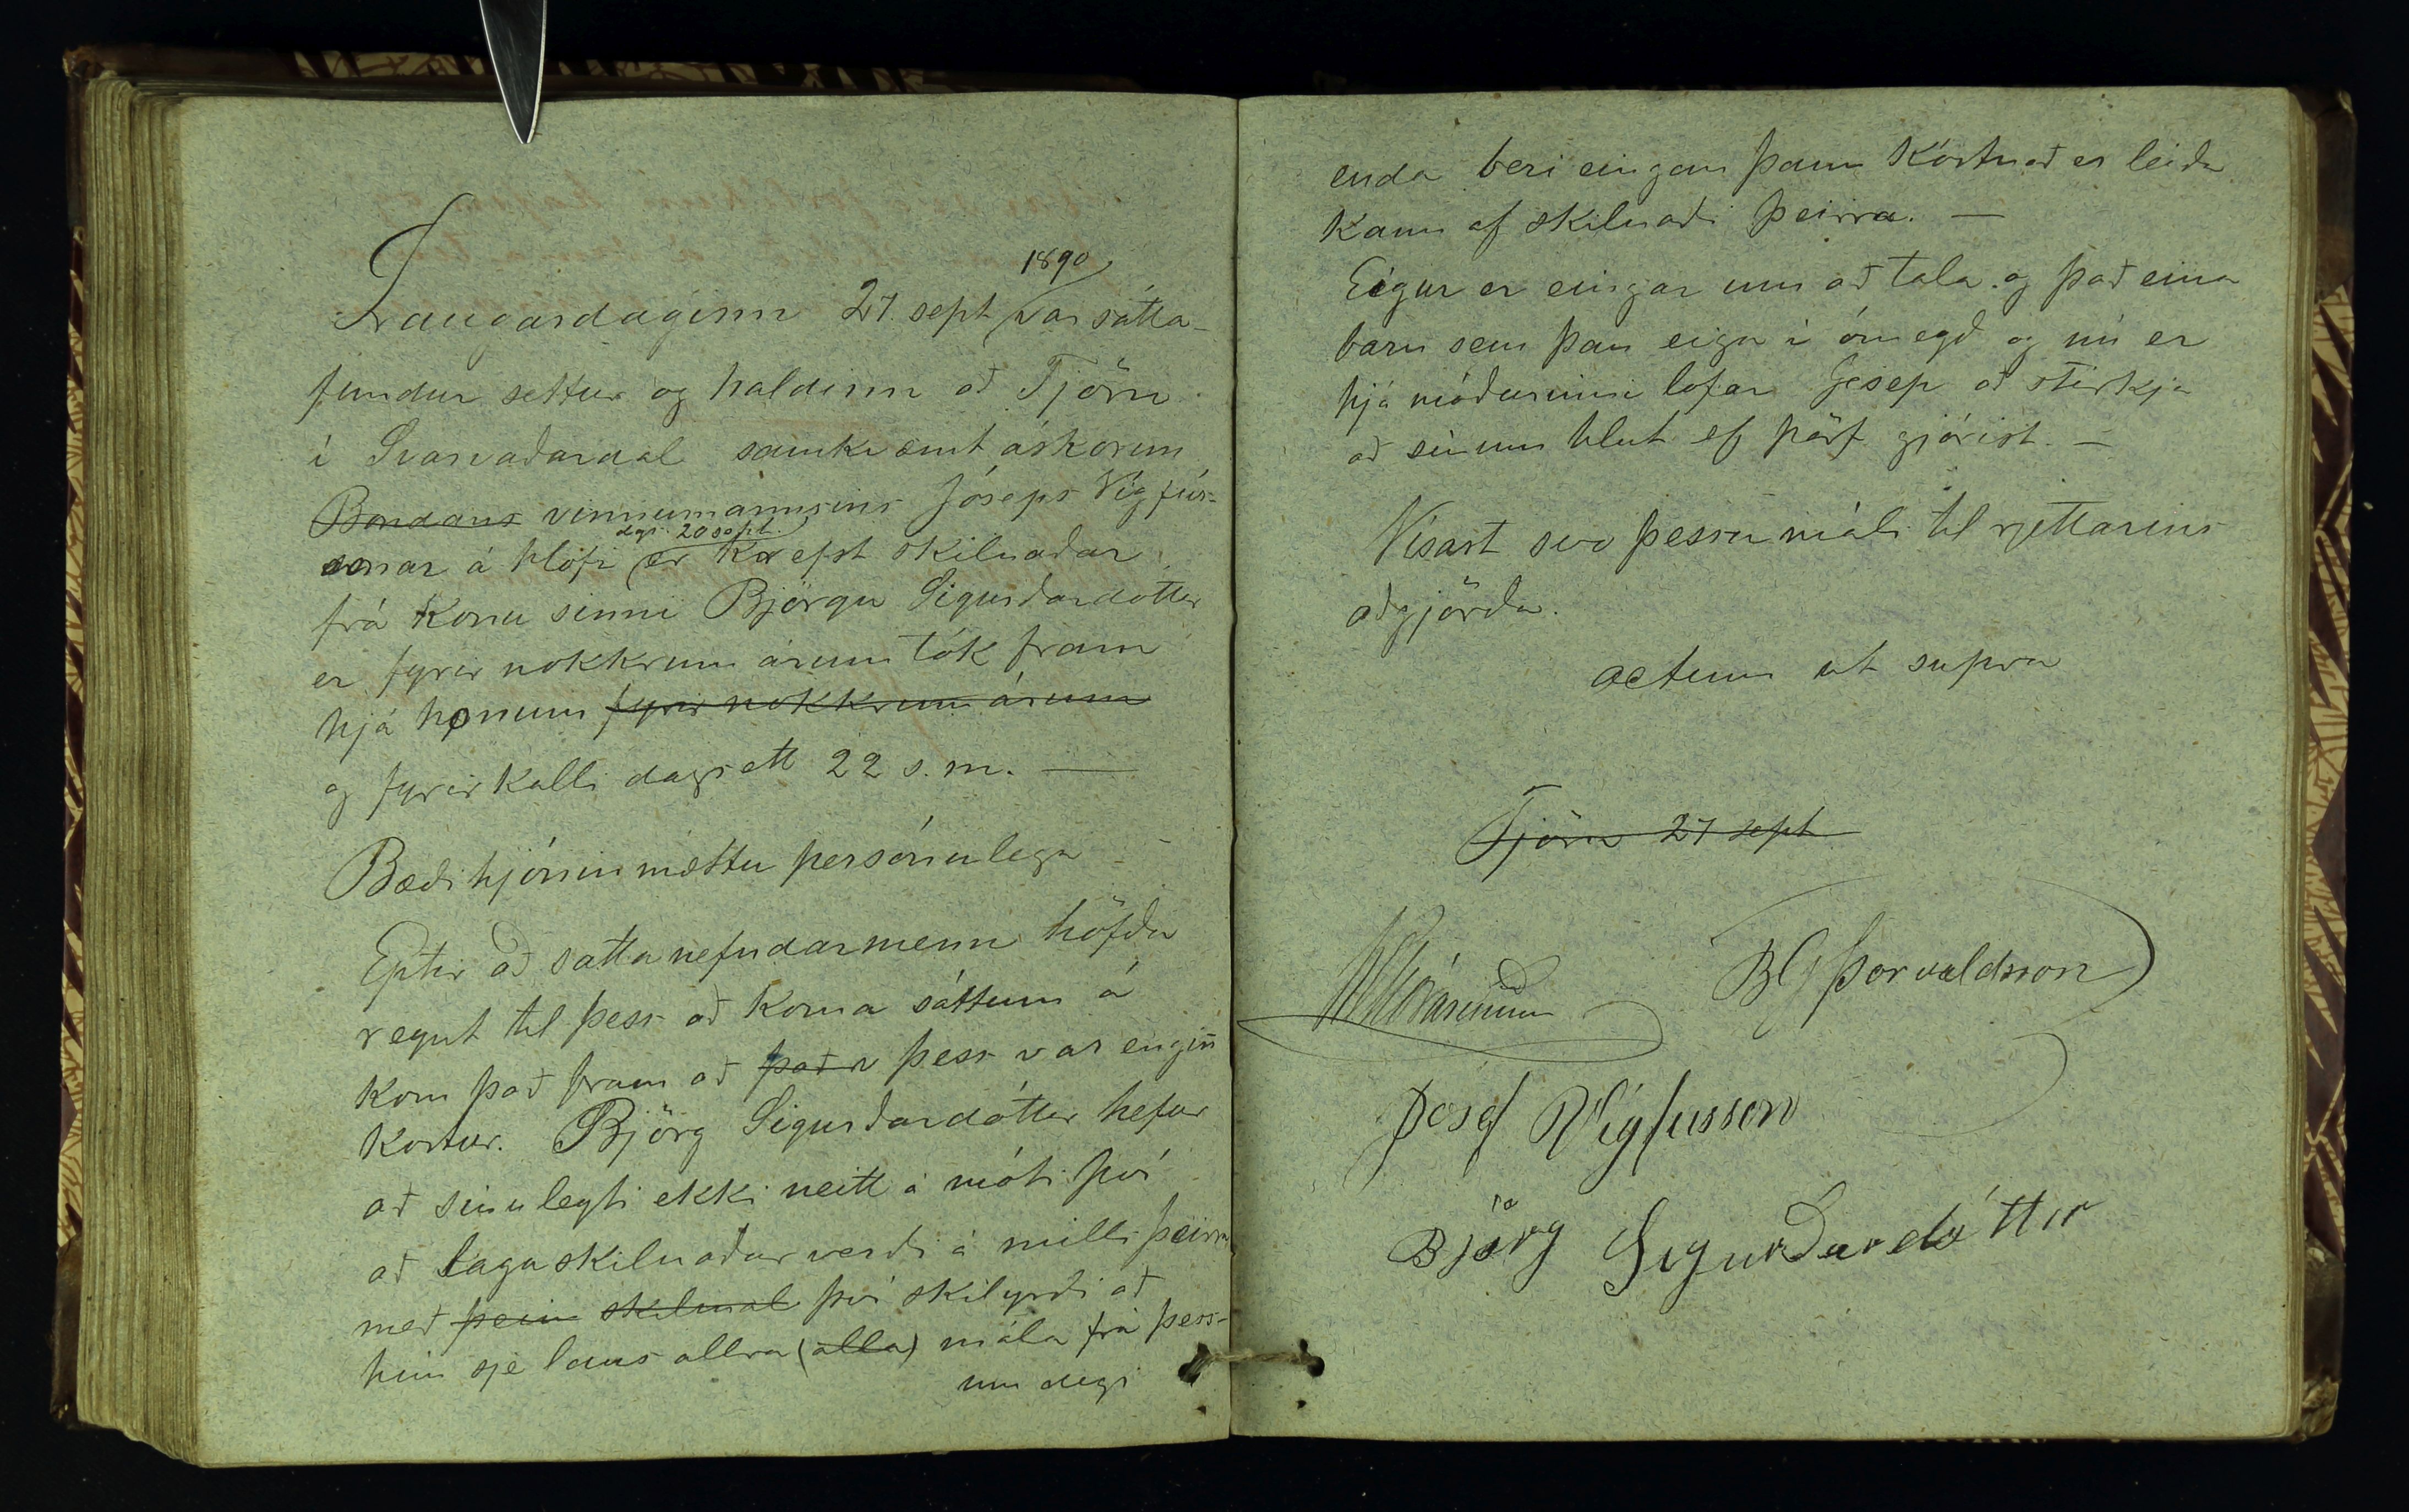 Laugardaginn 27. sept 1890 var sátta-
fundur settur og haldinn að Tjörn
í Svarvaðardal samkvæmt áskorun
Bondans vinnumannsins Jóseps Vigfús-
sonar á Hofi dags. 20 sept. er krefst skilnaðar
frá konu sinni Björgu Sigurðardóttur
er fyrir nokkrum árum tók fram
hjá honum fyrir nokkrum árum
og fyrirkalli dagsett 22 s.m. —
Bæði hjónin mættu persónulega —
Eptir að sáttanefndarmenn höfðu
reynt til þess að koma sáttum á
kom það fram að það v þess var enginn̄
kostur. Björg Sigurðardóttir hefur
að sínu leyti ekki neitt á móti því
að lagaskilnaður verði á milli þeirra
með þeim skilmál því skilyrði að
hún sje laus allra (alla) mála frá þess-
um degi
enda beri eingan þann kostnað er leiða
kann af skilnaði þeirra. —
Eigur er eingar um að tala og það eina
barn sem þau eiga í ómegð og nú er
hjá móðurinni lofar Jósep að stirkja
að sínum hlut ef þörf gjörist. —
Vísast svo þessu máli til rjettarins
aðgjörða.
actum ut supra
Tjörn 27 sept
BG Þorvaldsson
Josef Vigfusson
Björg Sigurðardóttir